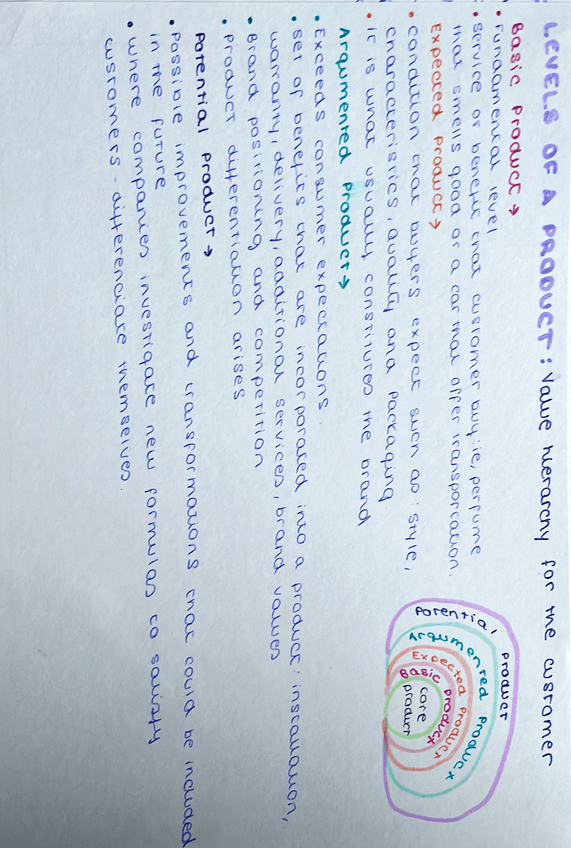 LEVELS OF A PRODUCT: Value hierarchy for the customer
Basic Product →
• Fundamental level
• Service or benefit that customer buy, ie, perfume
that smells good or a car that offer transportation.
Expected Product →
• Condition that buyers expect such as: Style,
characteristics, quality and packaging
• It is what usually constitutes the brand
Argumented Product →
• Exceeds consumer expectations.
• Set of benefits that are incorporated into a product: instalation,
warranty, delivery, additional services, brand values
• Brand positioning and competition
• Product differentiation arises
Potential Product →
• Possible improvements and transformations that could be included
in the future
• Where companies investigate new formulas to satisfy
customers - differenciate themselves.
Potential Product
Argumented Product
Expected Product
Basic Product
core
product